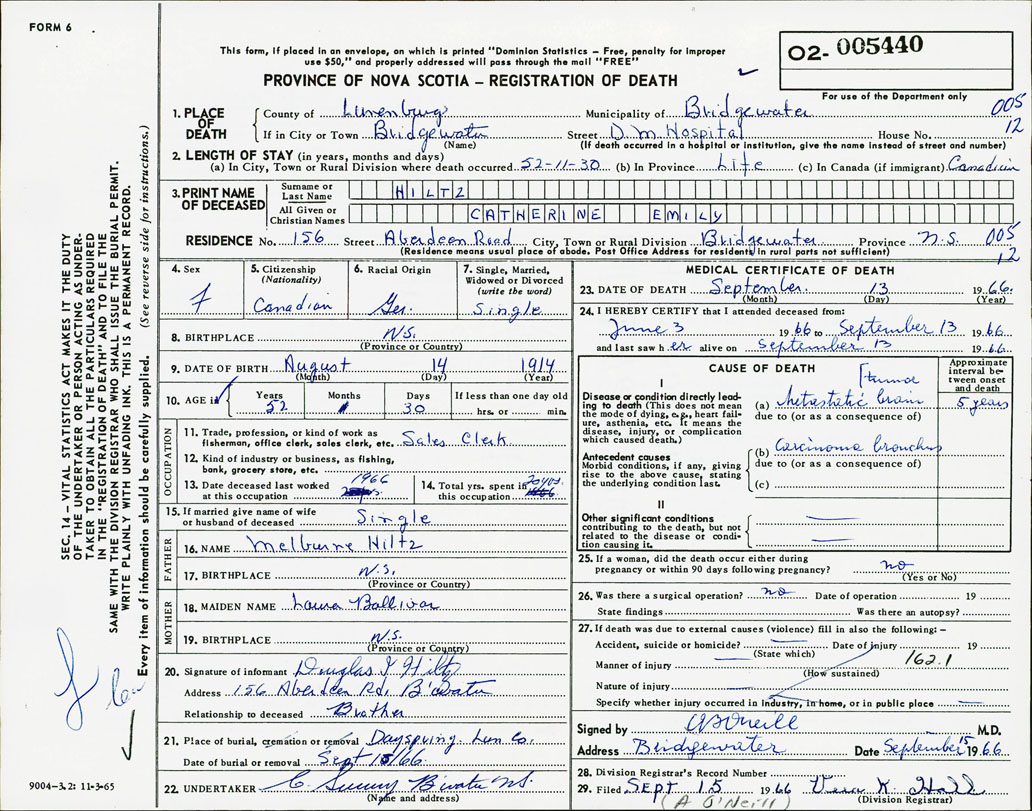 FORM 6
This form, if placed in an envelope, on which is printed "Dominion Statistics – Free, penalty for improper
use $50," and properly addressed will pass through the mail "FREE"
PROVINCE OF NOVA SCOTIA – REGISTRATION OF DEATH
O2- 005440
For use of the Department only
1. PLACE OF DEATH County of Lunenburg Municipality of Bridgewater 005
If in City or Town Bridgewater Street D.M. Hospital House No. 12
(Name) (If death occurred in a hospital or institution, give the name instead of street and number)
2. LENGTH OF STAY (in years, months and days)
(a) In City, Town or Rural Division where death occurred 52-11-30 (b) In Province Life (c) In Canada (if immigrant) Canadian
3. PRINT NAME OF DECEASED Surname or Last Name HILTZ
All Given or Christian Names CATHERINE EMILY
RESIDENCE No. 156 Street Aberdeen Road City, Town or Rural Division Bridgewater Province N.S. 005
(Residence means usual place of abode. Post Office Address for residents in rural parts not sufficient) 12
4. Sex F
5. Citizenship (Nationality) Canadian
6. Racial Origin Ger.
7. Single, Married, Widowed or Divorced (write the word) Single
8. BIRTHPLACE N.S.
(Province or Country)
9. DATE OF BIRTH August 14 1914
(Month) (Day) (Year)
10. AGE if Years Months Days If less than one day old
52 30 hrs. or min.
OCCUPATION
11. Trade, profession, or kind of work as
fisherman, office clerk, sales clerk, etc. Sales Clerk
12. Kind of industry or business, as fishing,
bank, grocery store, etc.
13. Date deceased last worked
at this occupation 1966
14. Total yrs. spent in
this occupation 20 yrs.
15. If married give name of wife
or husband of deceased Single
FATHER
16. NAME Melburne Hiltz
17. BIRTHPLACE N.S.
(Province or Country)
MOTHER
18. MAIDEN NAME Laura Bollivar
19. BIRTHPLACE N.S.
(Province or Country)
20. Signature of informant Douglas I Hiltz
Address 156 Aberdeen Rd, B'water
Relationship to deceased Brother
21. Place of burial, cremation or removal Dayspring, Lun Co.
Date of burial or removal Sept 15/66.
22. UNDERTAKER B'water NS
(Name and address)
MEDICAL CERTIFICATE OF DEATH
23. DATE OF DEATH September 13 1966.
(Month) (Day) (Year)
24. I HEREBY CERTIFY that I attended deceased from:
June 3 1966 to September 13 1966
and last saw her alive on September 13 1966.
CAUSE OF DEATH
Approximate interval between onset and death
I
Disease or condition directly leading to death (This does not mean the mode of dying, e.g., heart failure, asthenia, etc. It means the disease, injury, or complication which caused death.)
tumor
(a) Metastatic brain 5 years
due to (or as a consequence of)
Antecedent causes
Morbid conditions, if any, giving rise to the above cause, stating the underlying condition last.
(b) Carcinoma bronchus
due to (or as a consequence of)
(c)
II
Other significant conditions
contributing to the death, but not related to the disease or condition causing it.
25. If a woman, did the death occur either during
pregnancy or within 90 days following pregnancy? no
(Yes or No)
26. Was there a surgical operation? no Date of operation 19
State findings Was there an autopsy?
27. If death was due to external causes (violence) fill in also the following: –
Accident, suicide or homicide? Date of injury 19
(State which)
Manner of injury 162.1
(How sustained)
Nature of injury
Specify whether injury occurred in industry, in home, or in public place
Signed by O'Neill M.D.
Address Bridgewater Date September 15 1966
28. Division Registrar's Record Number
29. Filed SEPT 15 1966 Vera K. Hall
(A O'Neill) (Division Registrar)
SEC. 14 – VITAL STATISTICS ACT MAKES IT THE DUTY
OF THE UNDERTAKER OR PERSON ACTING AS UNDER-
TAKER TO OBTAIN ALL THE PARTICULARS REQUIRED
IN THE "REGISTRATION OF DEATH" AND TO FILE THE
SAME WITH THE DIVISION REGISTRAR WHO SHALL ISSUE THE BURIAL PERMIT.
WRITE PLAINLY WITH UNFADING INK. THIS IS A PERMANENT RECORD.
Every item of information should be carefully supplied. (See reverse side for instructions.)
9004-3.2: 11-3-65